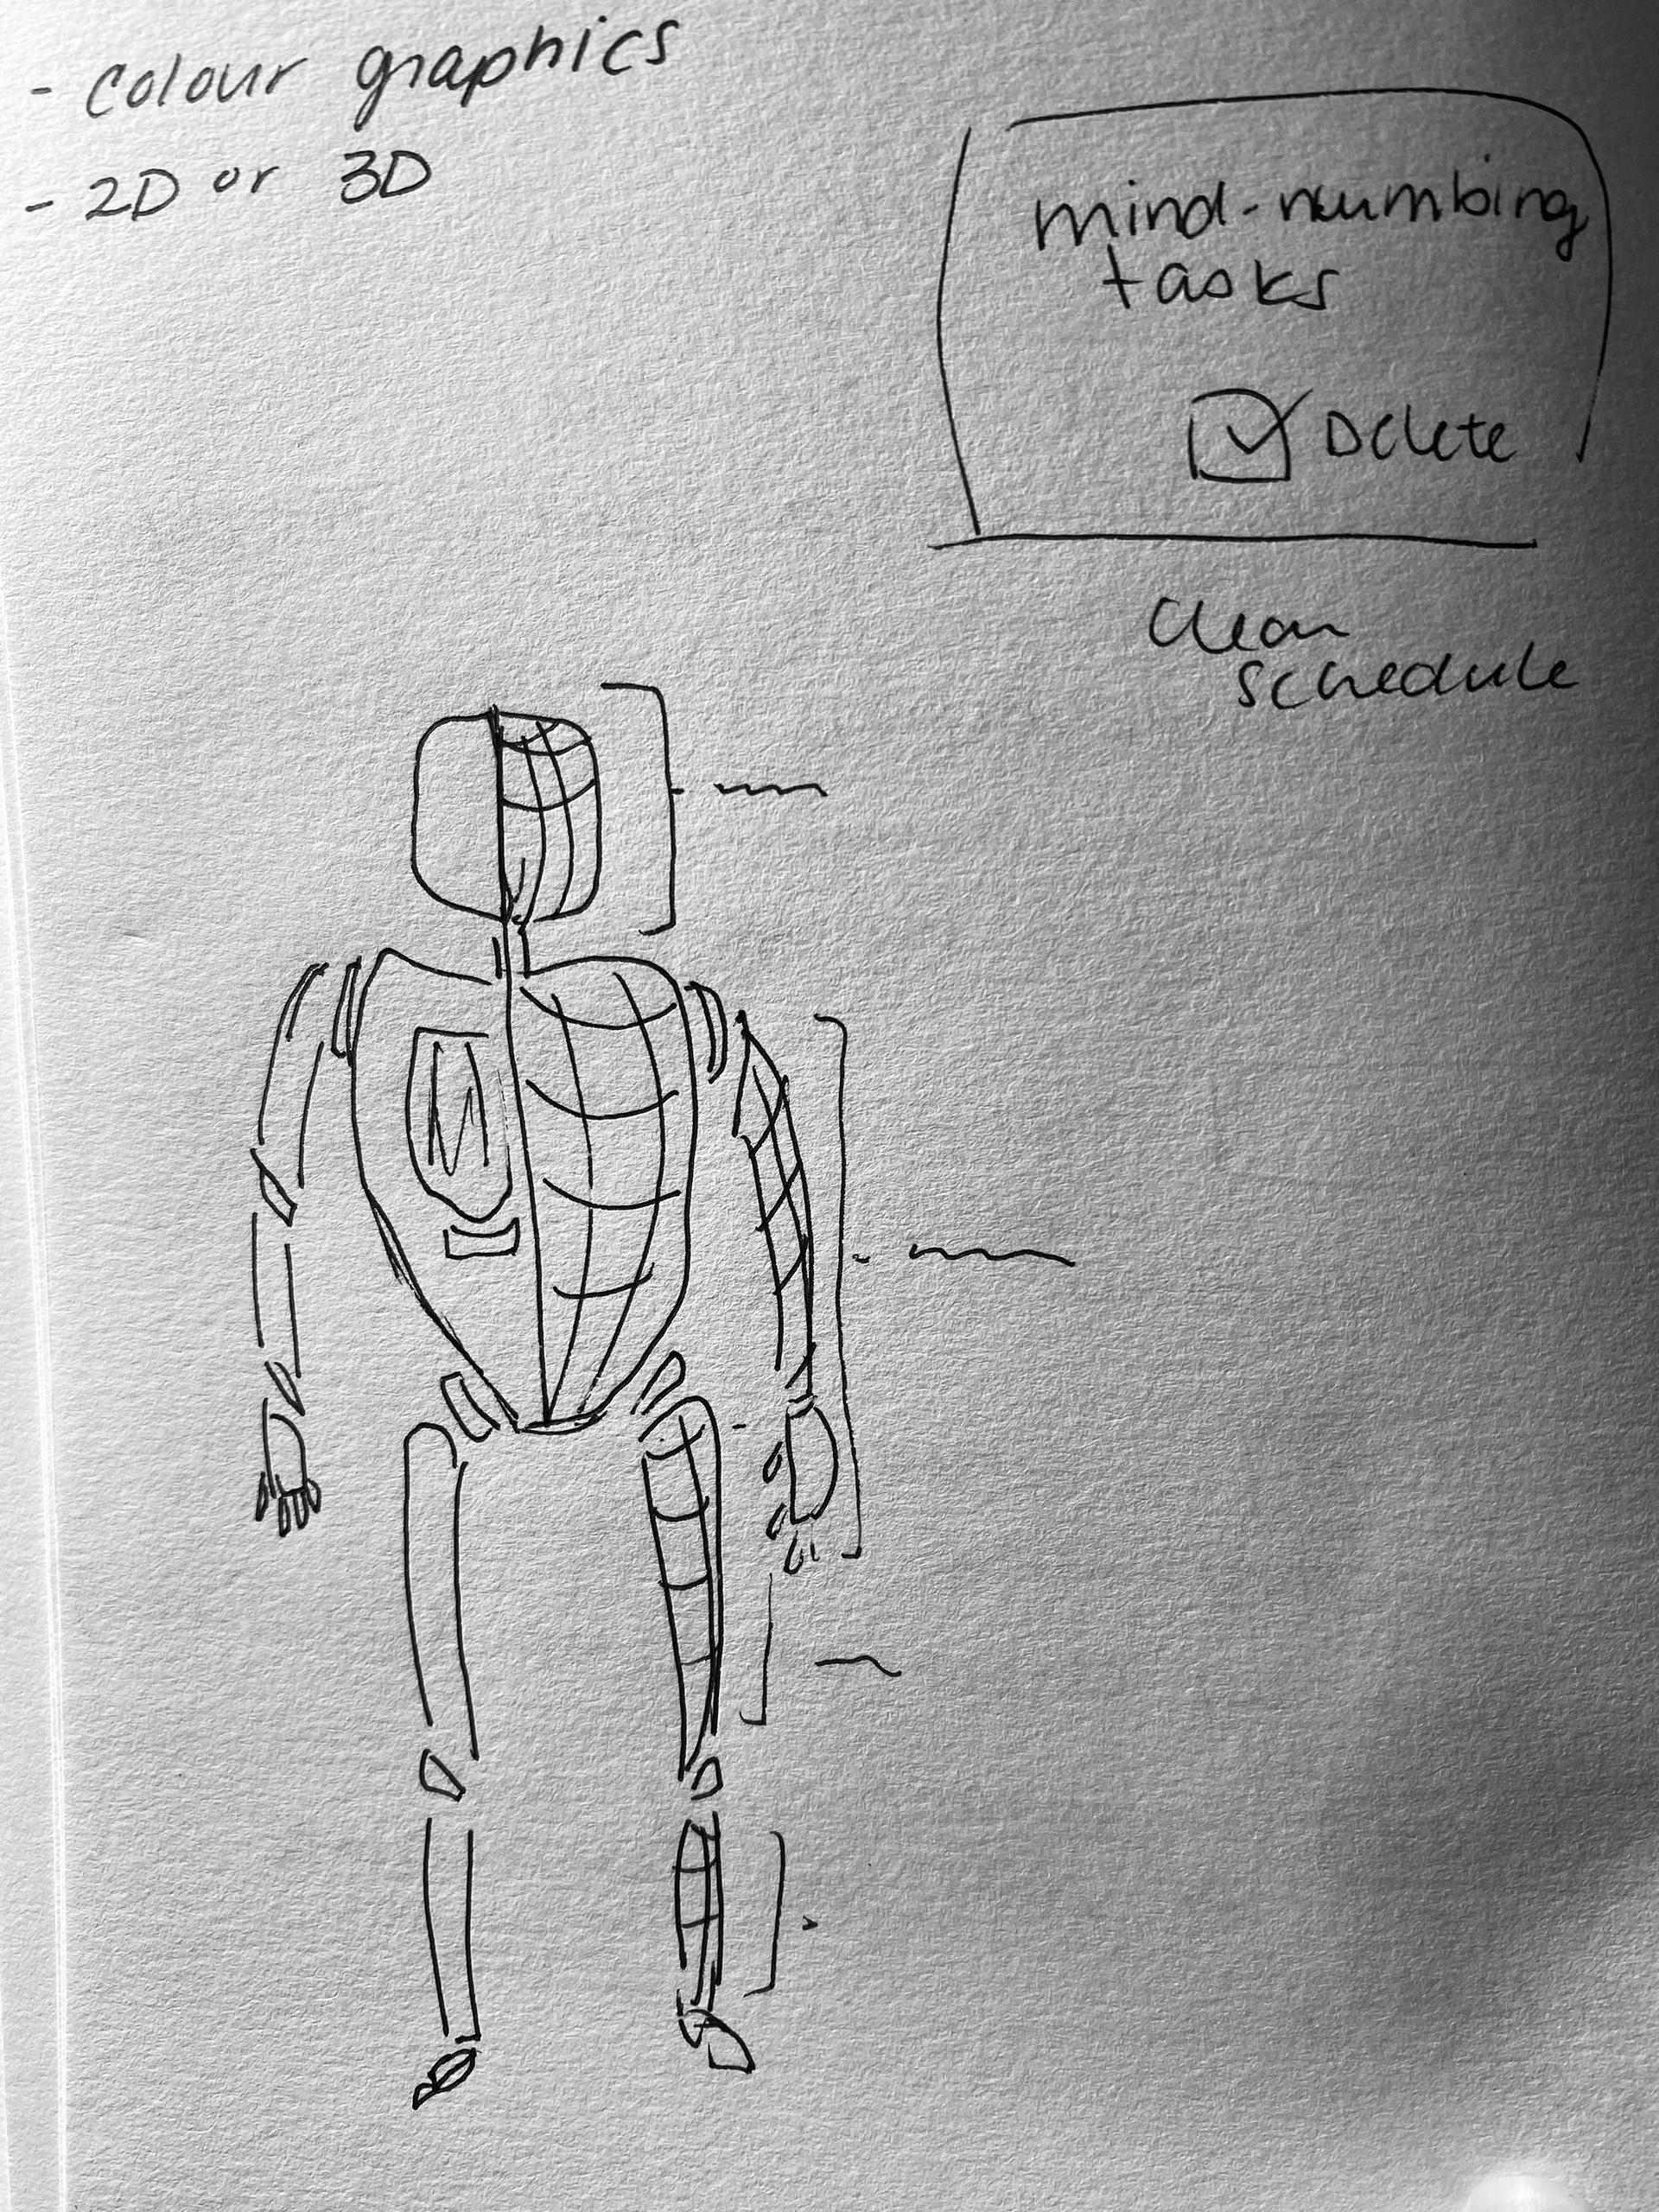 - Colour graphics
- 2D or 3D
mind-numbing
tasks
Delete
Clean
schedule